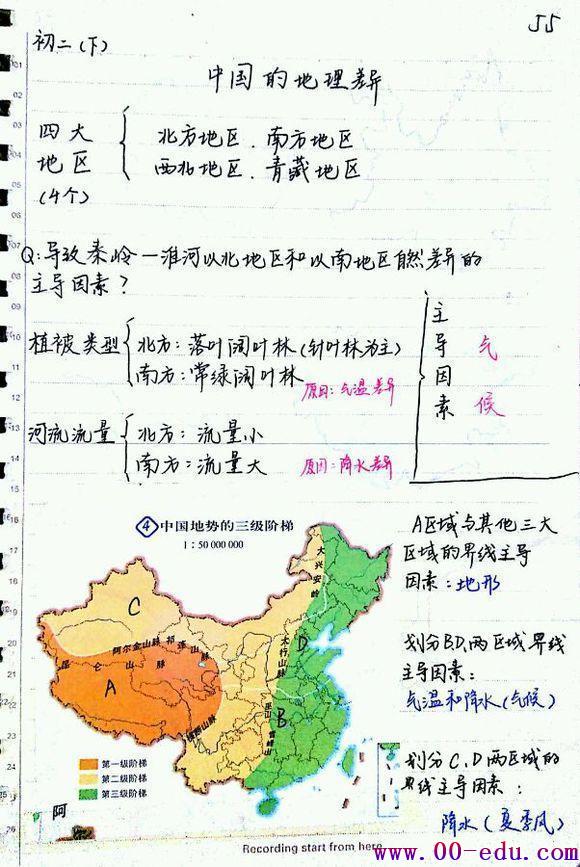 55
初二(下)
中国的地理差异
四大 北方地区、南方地区
地区 西北地区、青藏地区
(4个)
Q:导致秦岭一淮河以北地区和以南地区自然差异的
主导因素?
植被类型 北方:落叶阔叶林(针叶林为主)
南方:常绿阔叶林
原因:气温差异
河流流量 北方:流量小
南方:流量大
原因:降水差异
主导因素
气候
④中国地势的三级阶梯
1:50 000 000
大兴安岭
C
阿尔金山脉
祁连山脉
昆仑山脉
太行山脉
D
A
B
巫山
雪峰山
横断山脉
第一级阶梯
第二级阶梯
第三级阶梯
A区域与其他三大
区域的界线主导
因素:地形
划分BD两区域界线
主导因素:
气温和降水(气候)
划分C、D两区域的
界线主导因素:
降水(夏季风)
阿
Recording start from here
www.00-edu.com